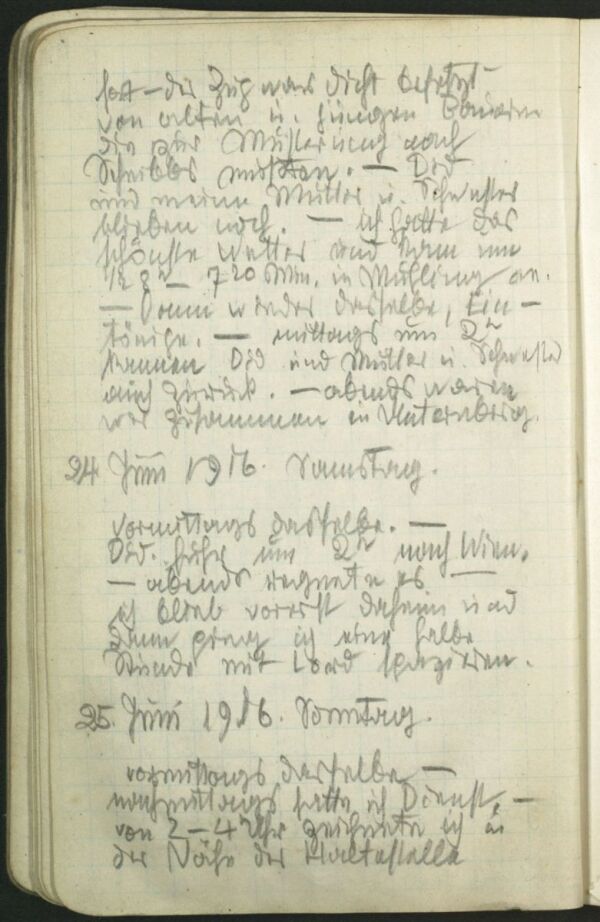 fort – der Zug war dicht besetzt
von alten u. jungen Bauern
die zur Musterung nach
Scheibbs mussten. –
und meine Mutter u. Schwester
blieben noch. – ich hatte das
schönste Wetter und kam um
7 20 Min. in Mühling an.
– Dann wieder dasselbe, Ein–
tönige. – mittags um 2h
kamen und Mutter u. Schwester
auch zurück. – abends waren
wir zusammen in Unternberg.
24. Juni 1916. Samstag.
vormittags dasselbe. –
fuhr um 2h nach Wien.
– abends regnete es –
ich blieb vorerst daheim und
dann ging ich eine halbe
Stunde mit Lord spazieren.
25. Juni 1916. Sonntag.
vormittags dasselbe –
nachmittags hatte ich Dienst, –
von 2–4 Uhr zeichnete ich in
der Nähe der Haltestelle